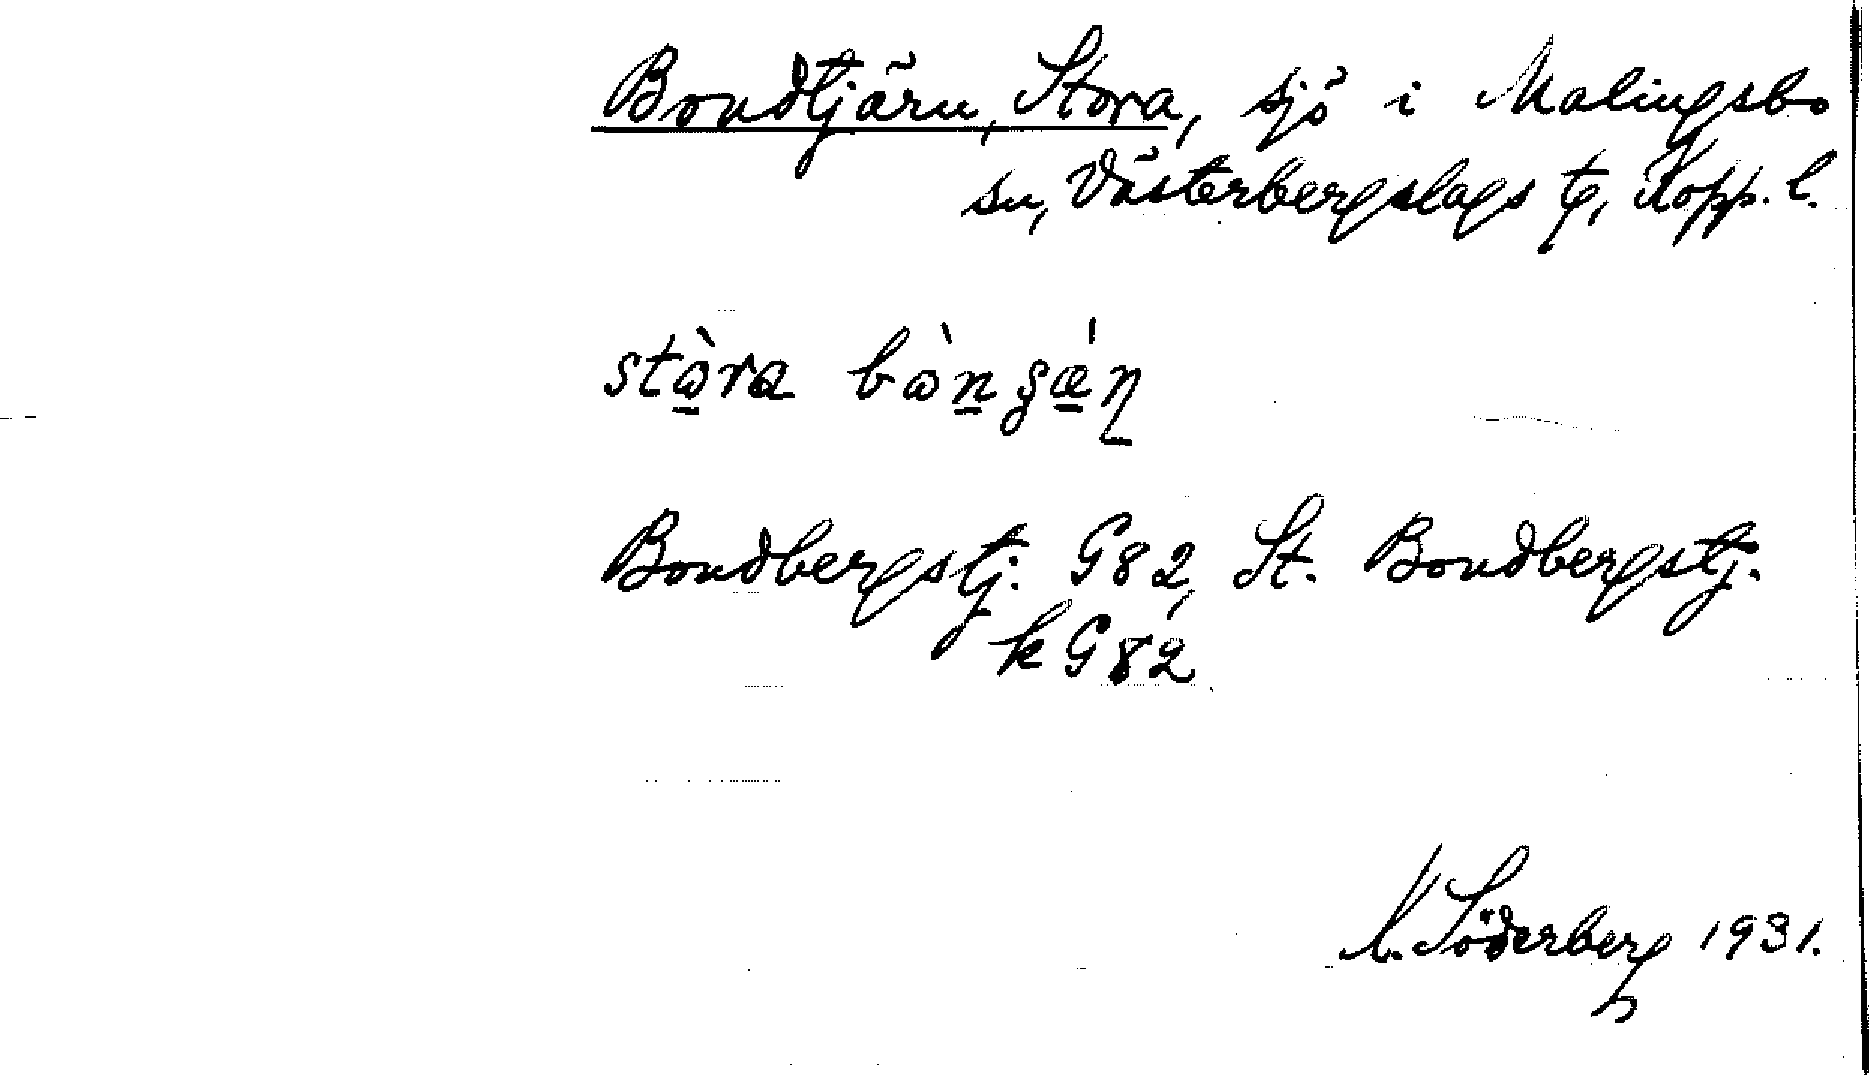 Bondtjärn, Stora, sjö i Malingsbo
sn, Västerbergslags tg, Kopp. l.
stòra bòngǽɳ
Bondbergstj. G82, St. Bondbergstj.
kG82
K. Söderberg 1931.